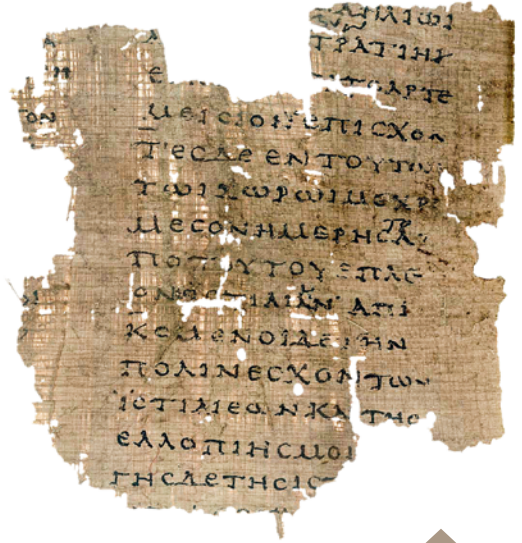 ΑΗΛΙΩΙ
ΤΡΑΤΙΗ
Ε ΤΟΑΡΤΕ
ΟΝ ΜΕΙCΙΟΝΕΠΙCΧΟΝ
ΤΕCΔΕΕΝΤΟΥΤΩ
ΤΩΙΧΩΡΩΙΜΕΧΡ
ΜΕCΟΝΗΜΕΡΗCΑ
ΠΟΤΟΥΤΟΥΕΠΛΕ
ΤΙΑΙΑΝΑΠΙ
ΚΟΜΕΝΟΙΔΕΤΗΝ
ΠΟΛΙΝΕCΧΟΝΤΩΝ
ΙCΤΙΑΙΕΩΝΚΑΙΤΗC
ΕΛΛΟΠΙΗCΜΟΙ
ΓΗCΔΕΤΗCΙC